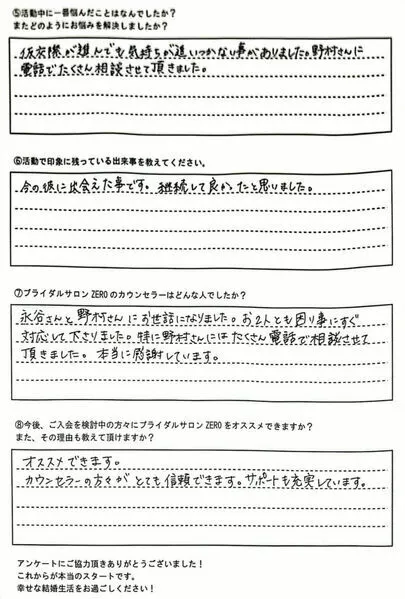 ⑤活動中に一番悩んだことはなんでしたか？
またどのようにお悩みを解決しましたか？
仮交際が進んでも気持ちが追いつかない事がありました。野村さんに
電話でたくさん相談させて頂きました。
⑥活動で印象に残っている出来事を教えてください。
今の彼に出会えた事です。継続して良かったと思いました。
⑦ブライダルサロン ZERO のカウンセラーはどんな人でしたか？
永谷さんと野村さんにお世話になりました。お2人とも困り事にすぐ
対応して下さりました。特に野村さんにはたくさん電話で相談させて
頂きました。本当に感謝しています。
⑧今後、ご入会を検討中の方々にブライダルサロン ZERO をオススメできますか？
また、その理由も教えて頂けますか？
オススメできます。
カウンセラーの方々がとても信頼できます。サポートも充実しています。
アンケートにご協力頂きありがとうございました！
これからが本当のスタートです。
幸せな結婚生活をお過ごしください！